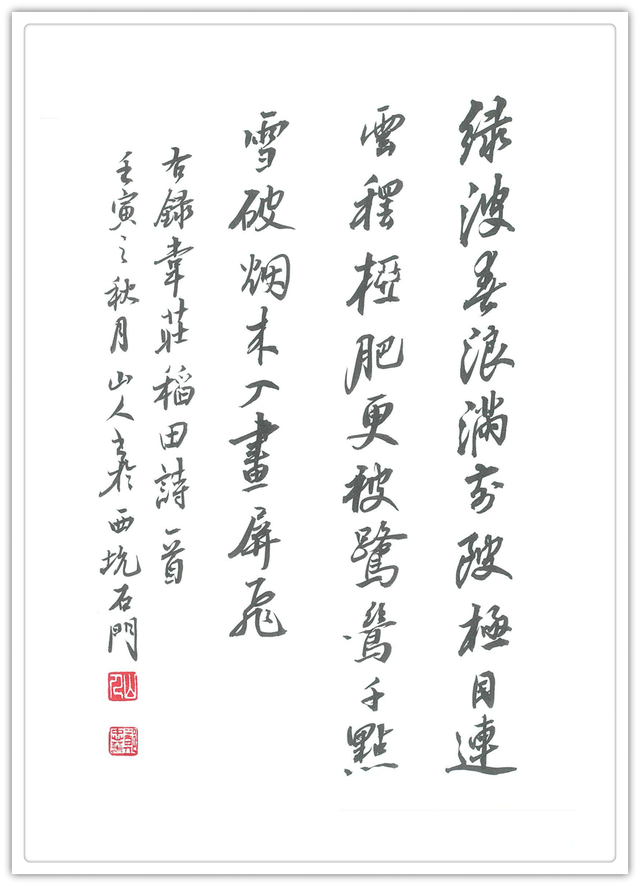 緑波春浪滿前陂極目連
雲䆉稏肥更被鷺鷥千點
雪破烟来入畫屏飛
右録韋莊稻田詩一首
壬寅之秋月山人書於西坑石門
山人